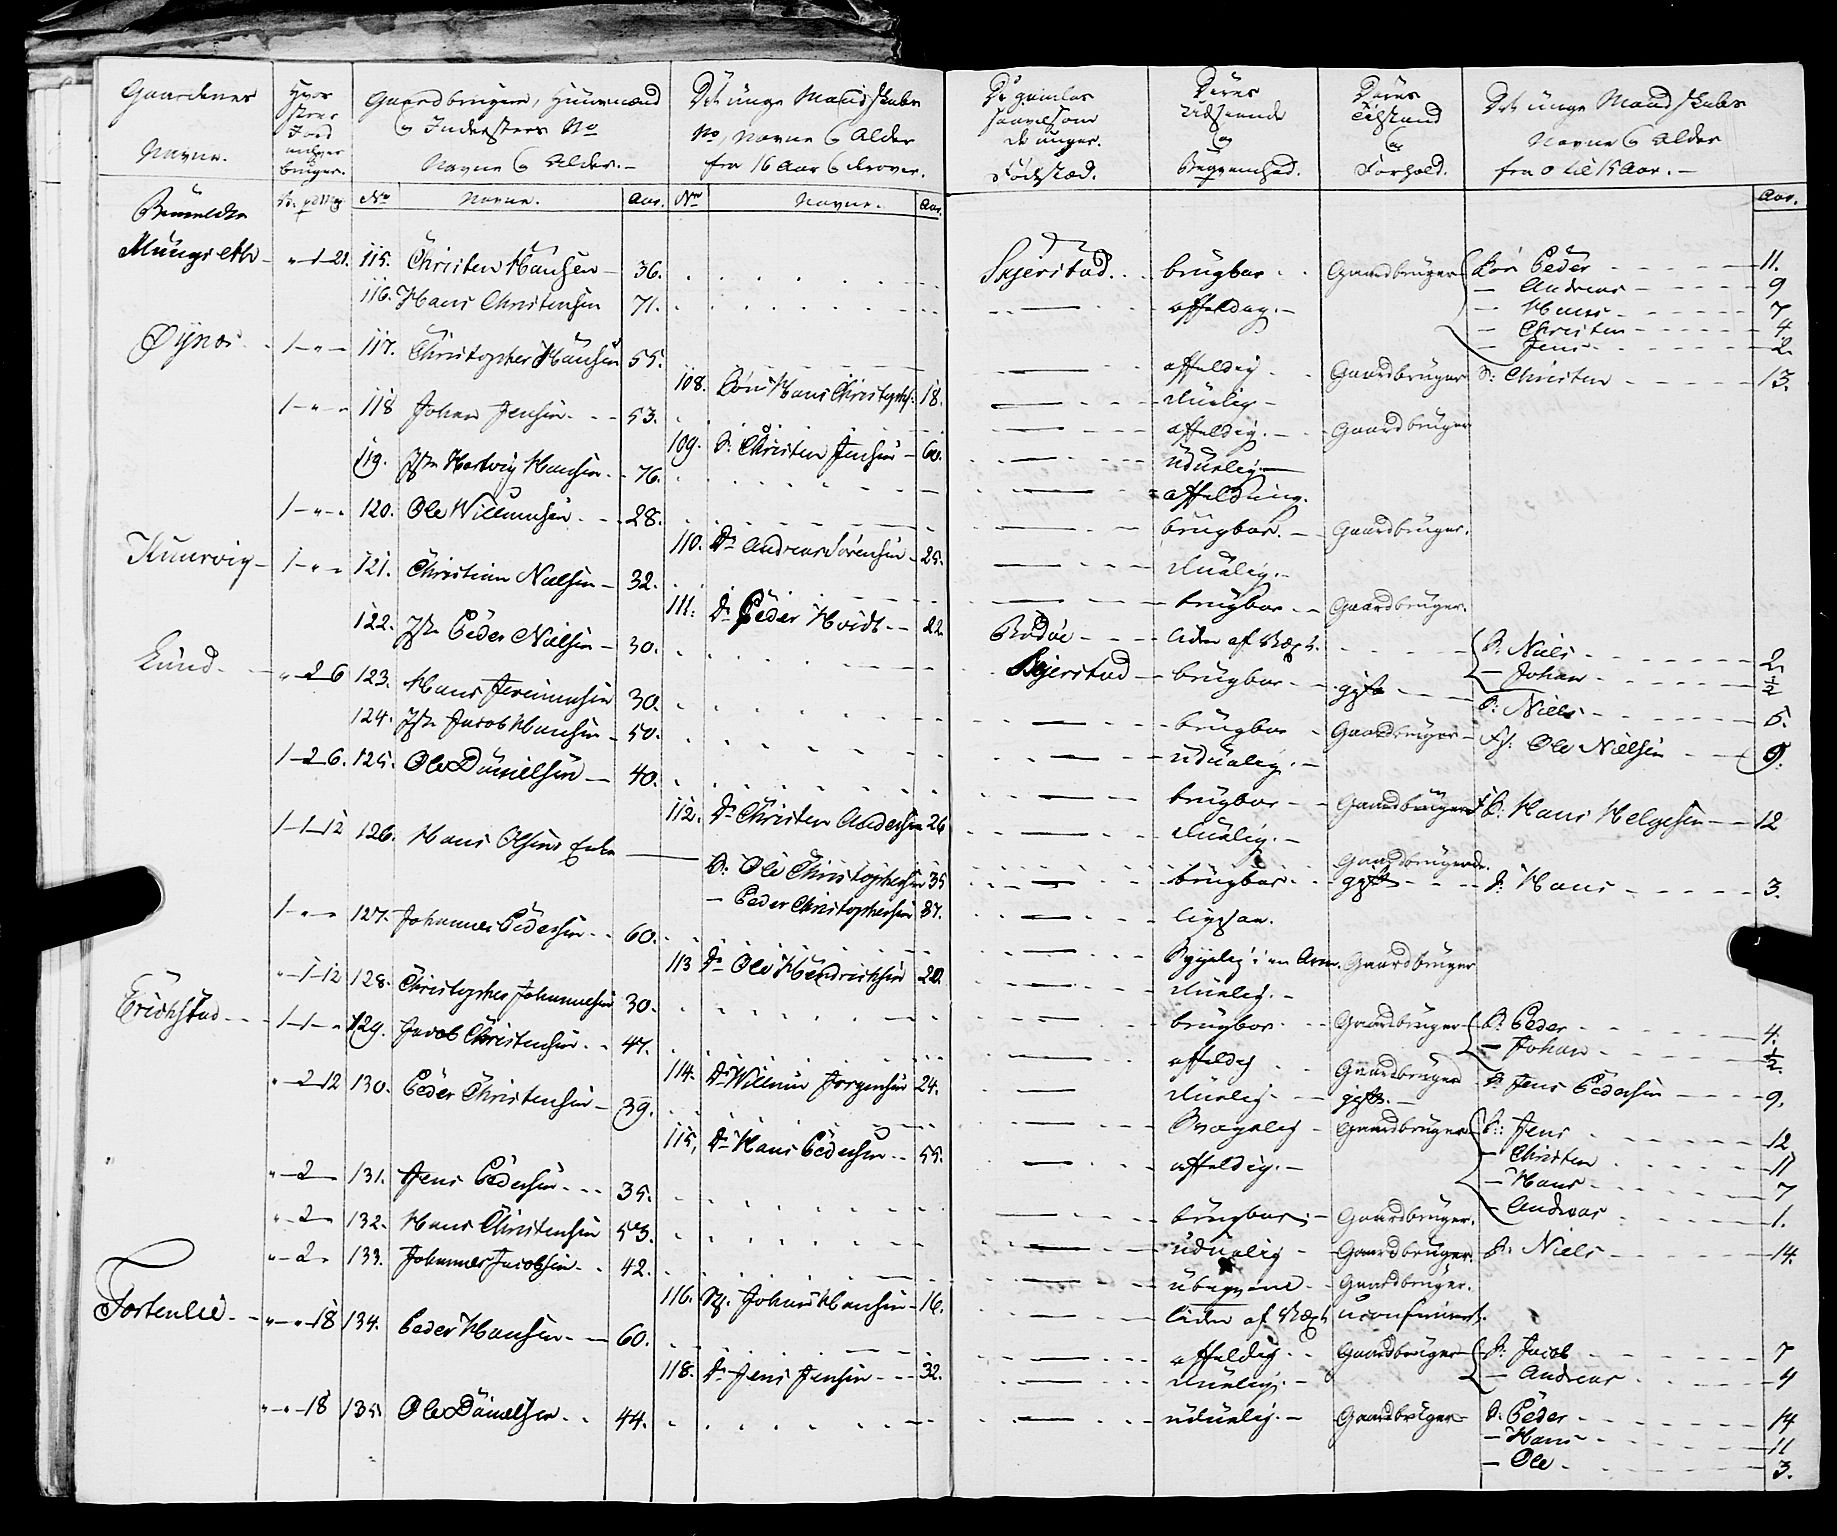 Gaardenes Navne.
Hvor stor Jord enhver bruger.
Gaardbrugere, Huusmænd & Inderster No Navne & Alder. —
Det unge Mandskabs No, Navne & Alder fra 16 Aar & derover.
De gamles saavelsom de unges Fødested.
Deres Udseende og Beqvemhed.
Deres Tilstand og Forhold.
Det unge Mandskabs Navne & Alder fra 0 til 15 Aar. —
No Navne. Aar. No Navne. Aar. Aar.
" 1 21. 115. Christen Hansen — 36. Skjerstad. brugbar Gaardbruger Søn Peder 11.
— Andreas 9
116. Hans Christensen 71. affeldig. — — Hans 7
— Christen 4
— Jens 2.
Øynes 1 — " — 117. Christopher Hansen 55. affeldig Gaardbruger S: Christen 13.
108. Søn Hans Christoph. 18. duelig —
1 — " — 118 Johan Jensen 53. affeldig. Gaardbruger
109. S: Christen Jensen 60. uduelig —
119. Hartvig Hansen 76. affeldig.
1 — " — 120. Ole Willumsen 28. brugbar. Gaardbruger.
110. Dr Andreas Sørensen 25. duelig. —
1 — " — 121. Christian Nielsen — 32. brugbar Gaardbruger.
111. Dr Peder Hvidt 22 Bodøe liden af Vext.
122. Peder Nielsen — 30. Skjerstad brugbar gift S: Niels 2
— Johan ½
Lund " 2 6 123. Hans Jeremiasen 30. brugbar Gaardbruger S: Niels 5.
124. Jacob Hansen 50. uduelig. — Ole Nielsen 9.
1 — 2 6. 125. Ole Danielsen — 40. brugbar Gaardbruger Hans Helgesen 12
112. Dr Christen Andersen 26 duelig. —
1 — 1 — 12 126. Hans Olsens Enke — Gaardbrugende.
D: Ole Christophersen 35 brugbar gift S: Hans 3.
— Peder Christophersen 37.
1 — " — 127. Johannes Pedersen 60. Svagelig i en Arm. Gaardbruger
113 Dr Ole Hendrichsen 20 duelig. —
Erichstad " — 1 — 12 128. Christopher Johannesen 30. brugbar Gaardbruger S: Peder 4.
— Johan ½.
1 — 1 — " 129. Jacob Christensen 47. affeldig Gaardbruger S: Jens Pedersen 9.
114. Dr Willum Jørgensen 24. duelig gift. —
" — 2 12 130. Peder Christensen — 39. Svagelig Gaardbruger S: Jens 12
— Christen 11
— Hans 7
— Andreas 1.
115, Dr Hans Pedersen 55. affeldig. —
" — 2 — 131. Jens Pedersen 35. brugbar Gaardbruger.
" — 2 — 132. Hans Christensen 53. uduelig Gaardbruger. S: Niels 14.
" — 2 " 133. Johannes Jacobsen 42. ubeqvem Gaardbruger.
116. Johan Hansen 16. liden af Vext uconfirmert.
Fortenlie " — " — 18 134. Peder Hansen 60. affeldig Gaardbruger S: Jacob 7
— Andreas 4
118. Dr Jens Jensen 32. duelig. —
" — " — 18 135 Ole Danielsen 44. uduelig. — Gaardbruger S: Peder 14
— Hans 11
— Ole 3.